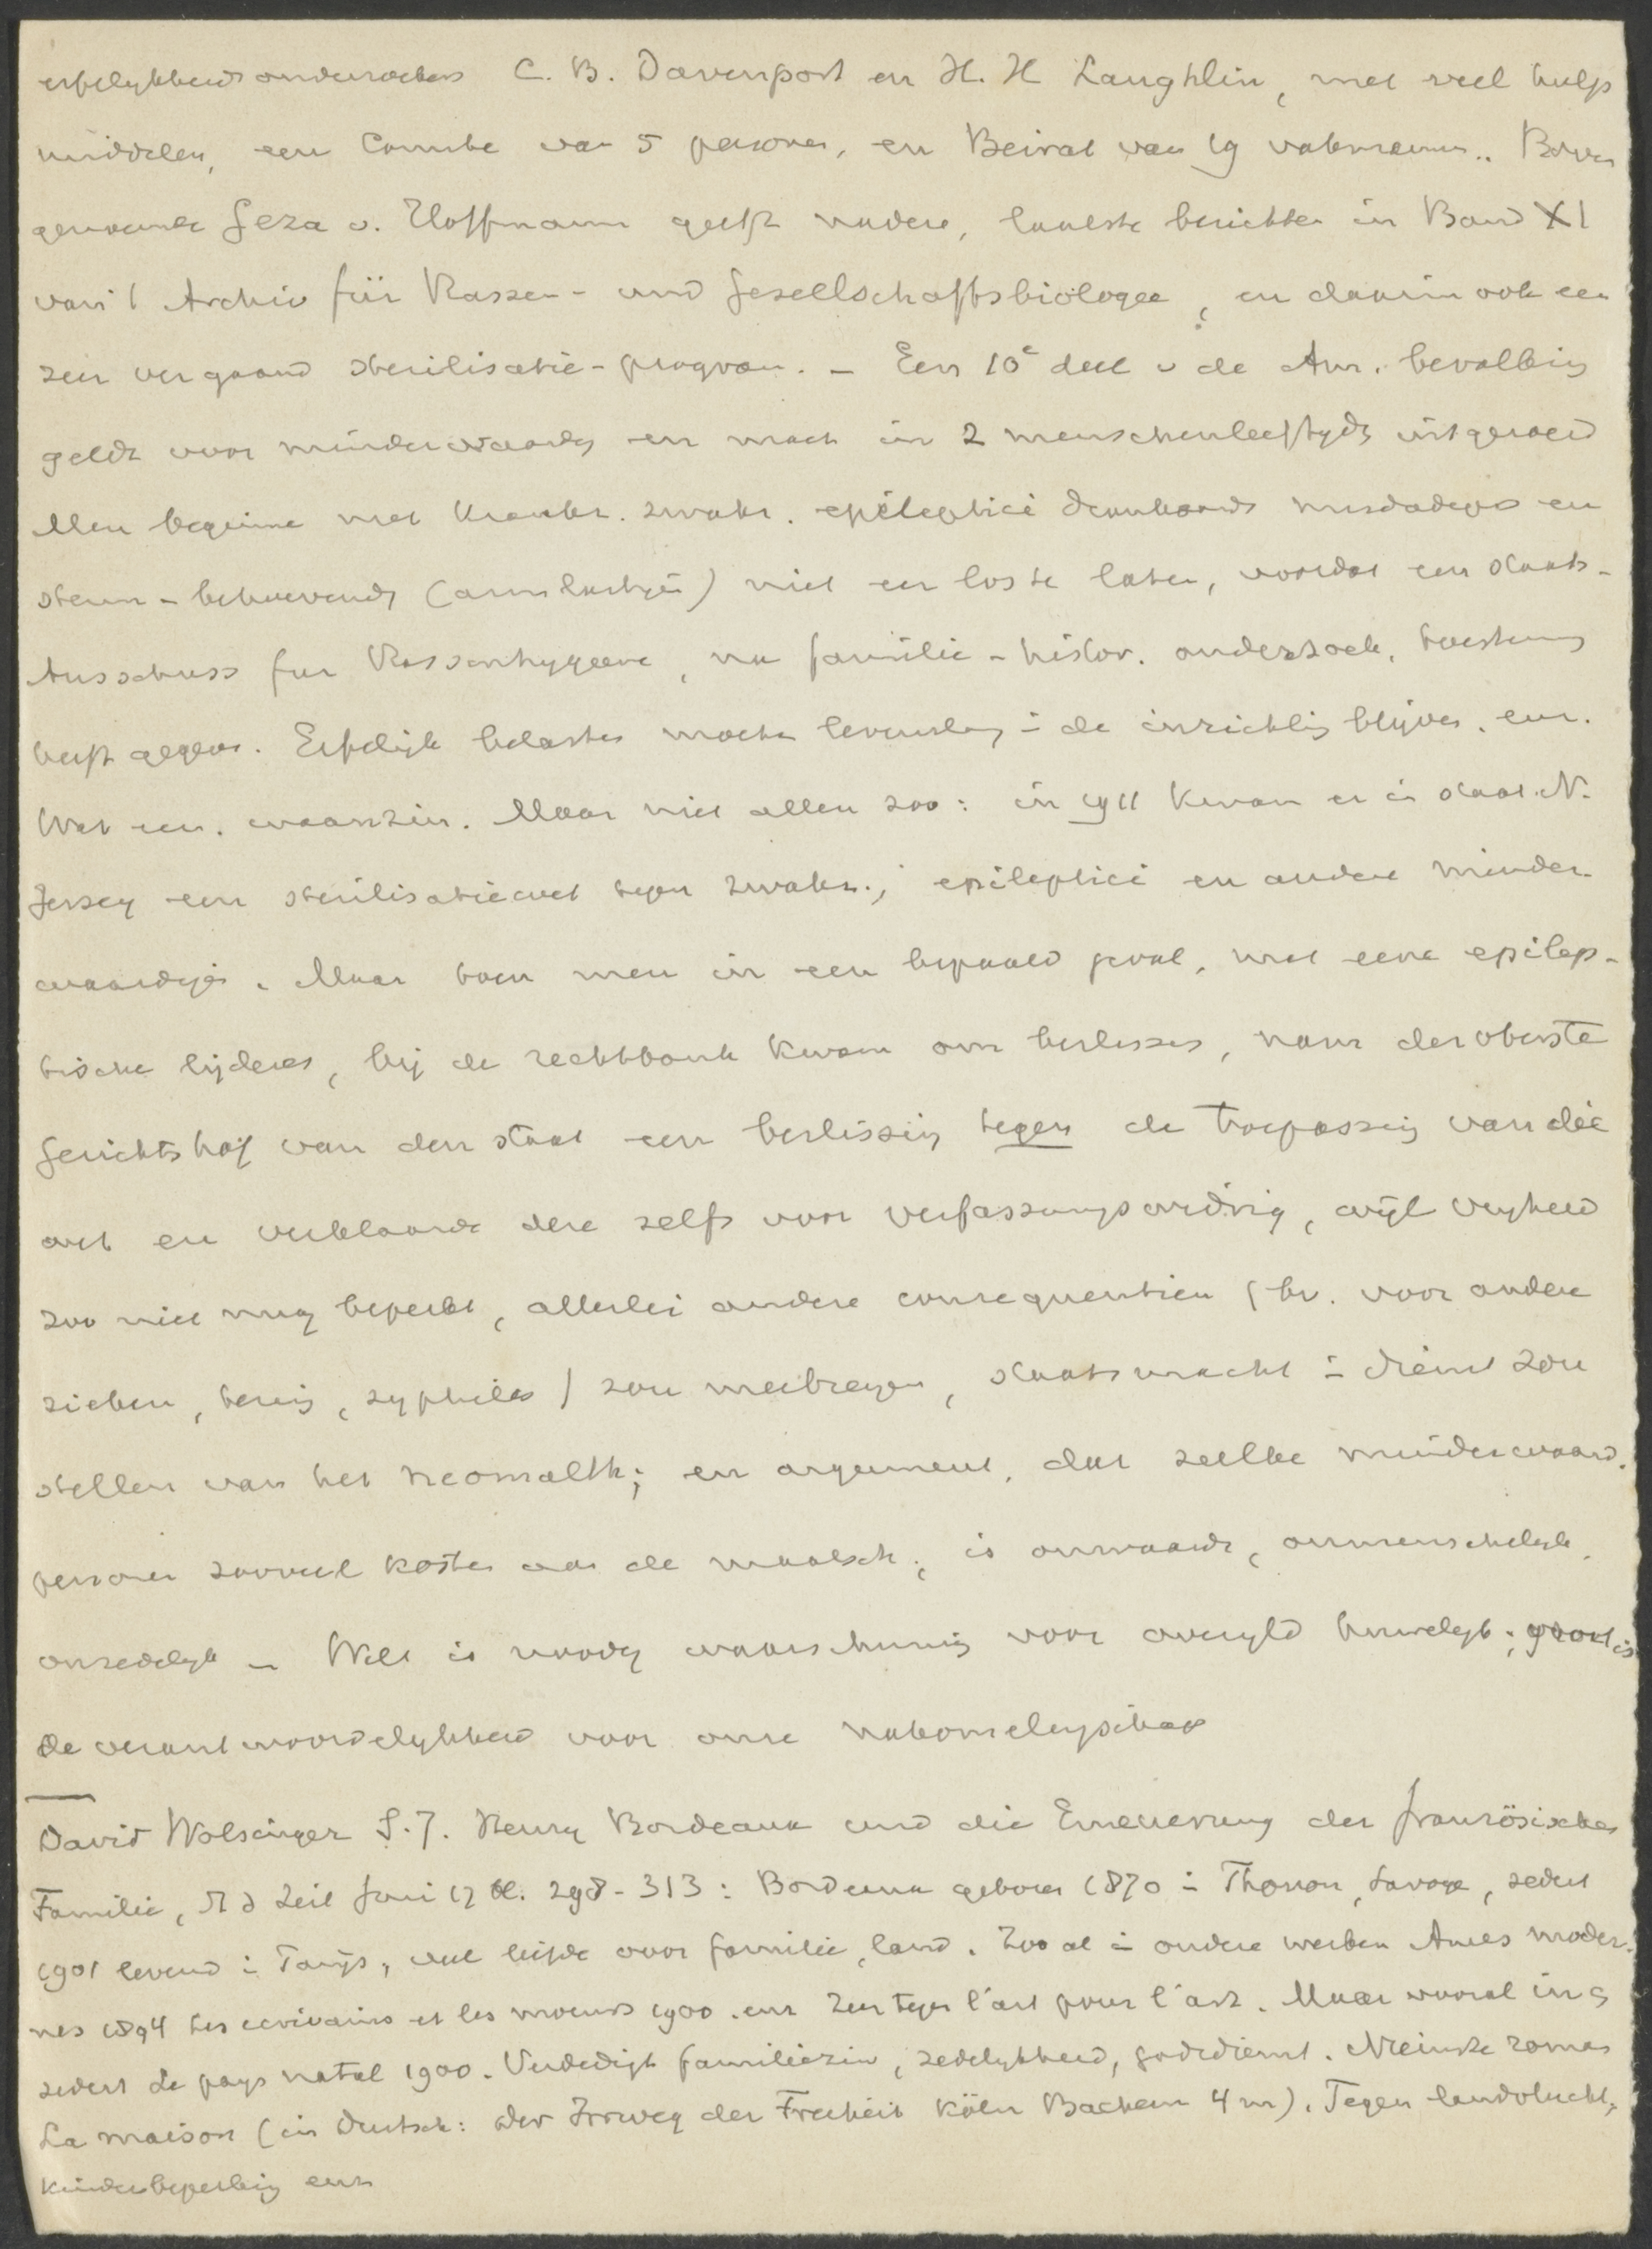 erfelykheidsonderzoekers C. B. Davenport en H. H Laughlin, met veel hulp
middelen, een Comite van 5 personen, en Beirat van 19 vakmannen.. Boven
genoemde Geza v. Hoffmann geeft nadere, laatste berichten in Band XI
van 't Archiv für Rassen- und Gesellschaftsbiologie, en daarin ook een
zeer vergaand sterilisatie-program. - Een 10e deel v de Am. bevolking
geldt voor minderwaardig en moet in 2 menschenleeftyds uitgeroeid
Men beginne met krankz. zwakz. epileptici dronkaards misdadigers en
steun-behoevends (armlastigen) niet eer los te laten, voordat een staats-
Ausschuss fur Rassenhygiene, na familie-histor. onderzoek, toestemming
heeft gegeven. Erfelijk belasten moeten levenslang i de inrichting blijven. enz.
Wat een waanzin. Maar niet allen zoo: in 1911 kwam er in staat N.
Jersey een sterilisatiewet tegen zwakz., epileptici en andere minder-
waardigen. Maar toen men in een bepaald geval, met eene epilep-
tische lijderes, bij de rechtbank kwam om beslissing, nam der oberste
Gerichtshof van den staat een beslissing tegen de toepassing van die
wet en verklaarde deze zelfs voor verfassungswidrig, wijl vryheid
zoo niet mag beperkt, allerlei andere consequentien (bv. voor andere
zieken, tering, syphilis) zou meebrengen, staatsmacht i dienst zou
stellen van het neomalth; en argument, dat zulke minderwaard.
personen zooveel kosten aan de maatsch., is onwaardig, onmenschelyk,
onzedelyk - Wel is noodig waarschuwing voor overyld huwelyk; groot is
de verantwoordelykheid voor onze nakomelingschap
David Wolsinger S.J. Henry Bordeaux und die Erneuerung der französischen
Familie, St d Zeit Juni 17 bl. 298-313: Bordeaux geboren 1870 i Thonon, Savoye, sedert
1901 levend i Parijs, vol liefde voor familie, land. Zoo al i andere werken Ames moder-
nes 1894 Les ecrivains et les moeurs 1900. enz. Zeer tegen l'art pour l'art. Maar vooral in
sedert Le pays natal 1900. Verdedigt familiezin, zedelykheid, godsdienst. Nieuwste roman
La maison (in Duitsch: Der Irrweg der Freiheit Köln Bachem 4 m). Tegen landvlucht,
kinderbeperking enz